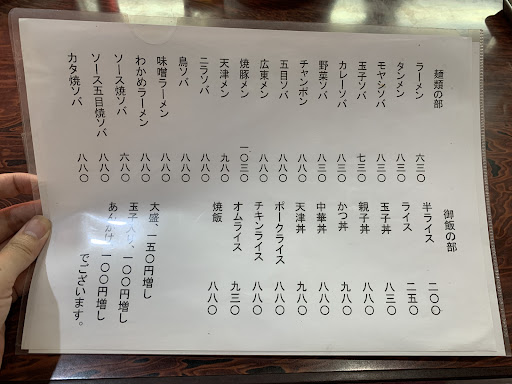 麺類の部
ラーメン 六三〇
タンメン 八三〇
モヤシソバ 八三〇
玉子ソバ 七三〇
カレーソバ 八三〇
野菜ソバ 八三〇
チャンポン 八八〇
五目ソバ 八八〇
広東メン 八八〇
焼豚メン 一〇三〇
天津メン 九八〇
ニラソバ 八八〇
鳥ソバ 八八〇
味噌ラーメン 八八〇
わかめラーメン 八八〇
ソース焼ソバ 六八〇
ソース五目焼ソバ 八八〇
カタ焼ソバ 八八〇
御飯の部
半ライス 二〇〇
ライス 二五〇
玉子丼 八三〇
親子丼 八八〇
かつ丼 九八〇
中華丼 八八〇
天津丼 九八〇
ポークライス 八八〇
チキンライス 八八〇
オムライス 九三〇
焼飯 八八〇
大盛、一五〇円増し
玉子入り、一〇〇円増し
あんかけ 一〇〇円増し
でございます。